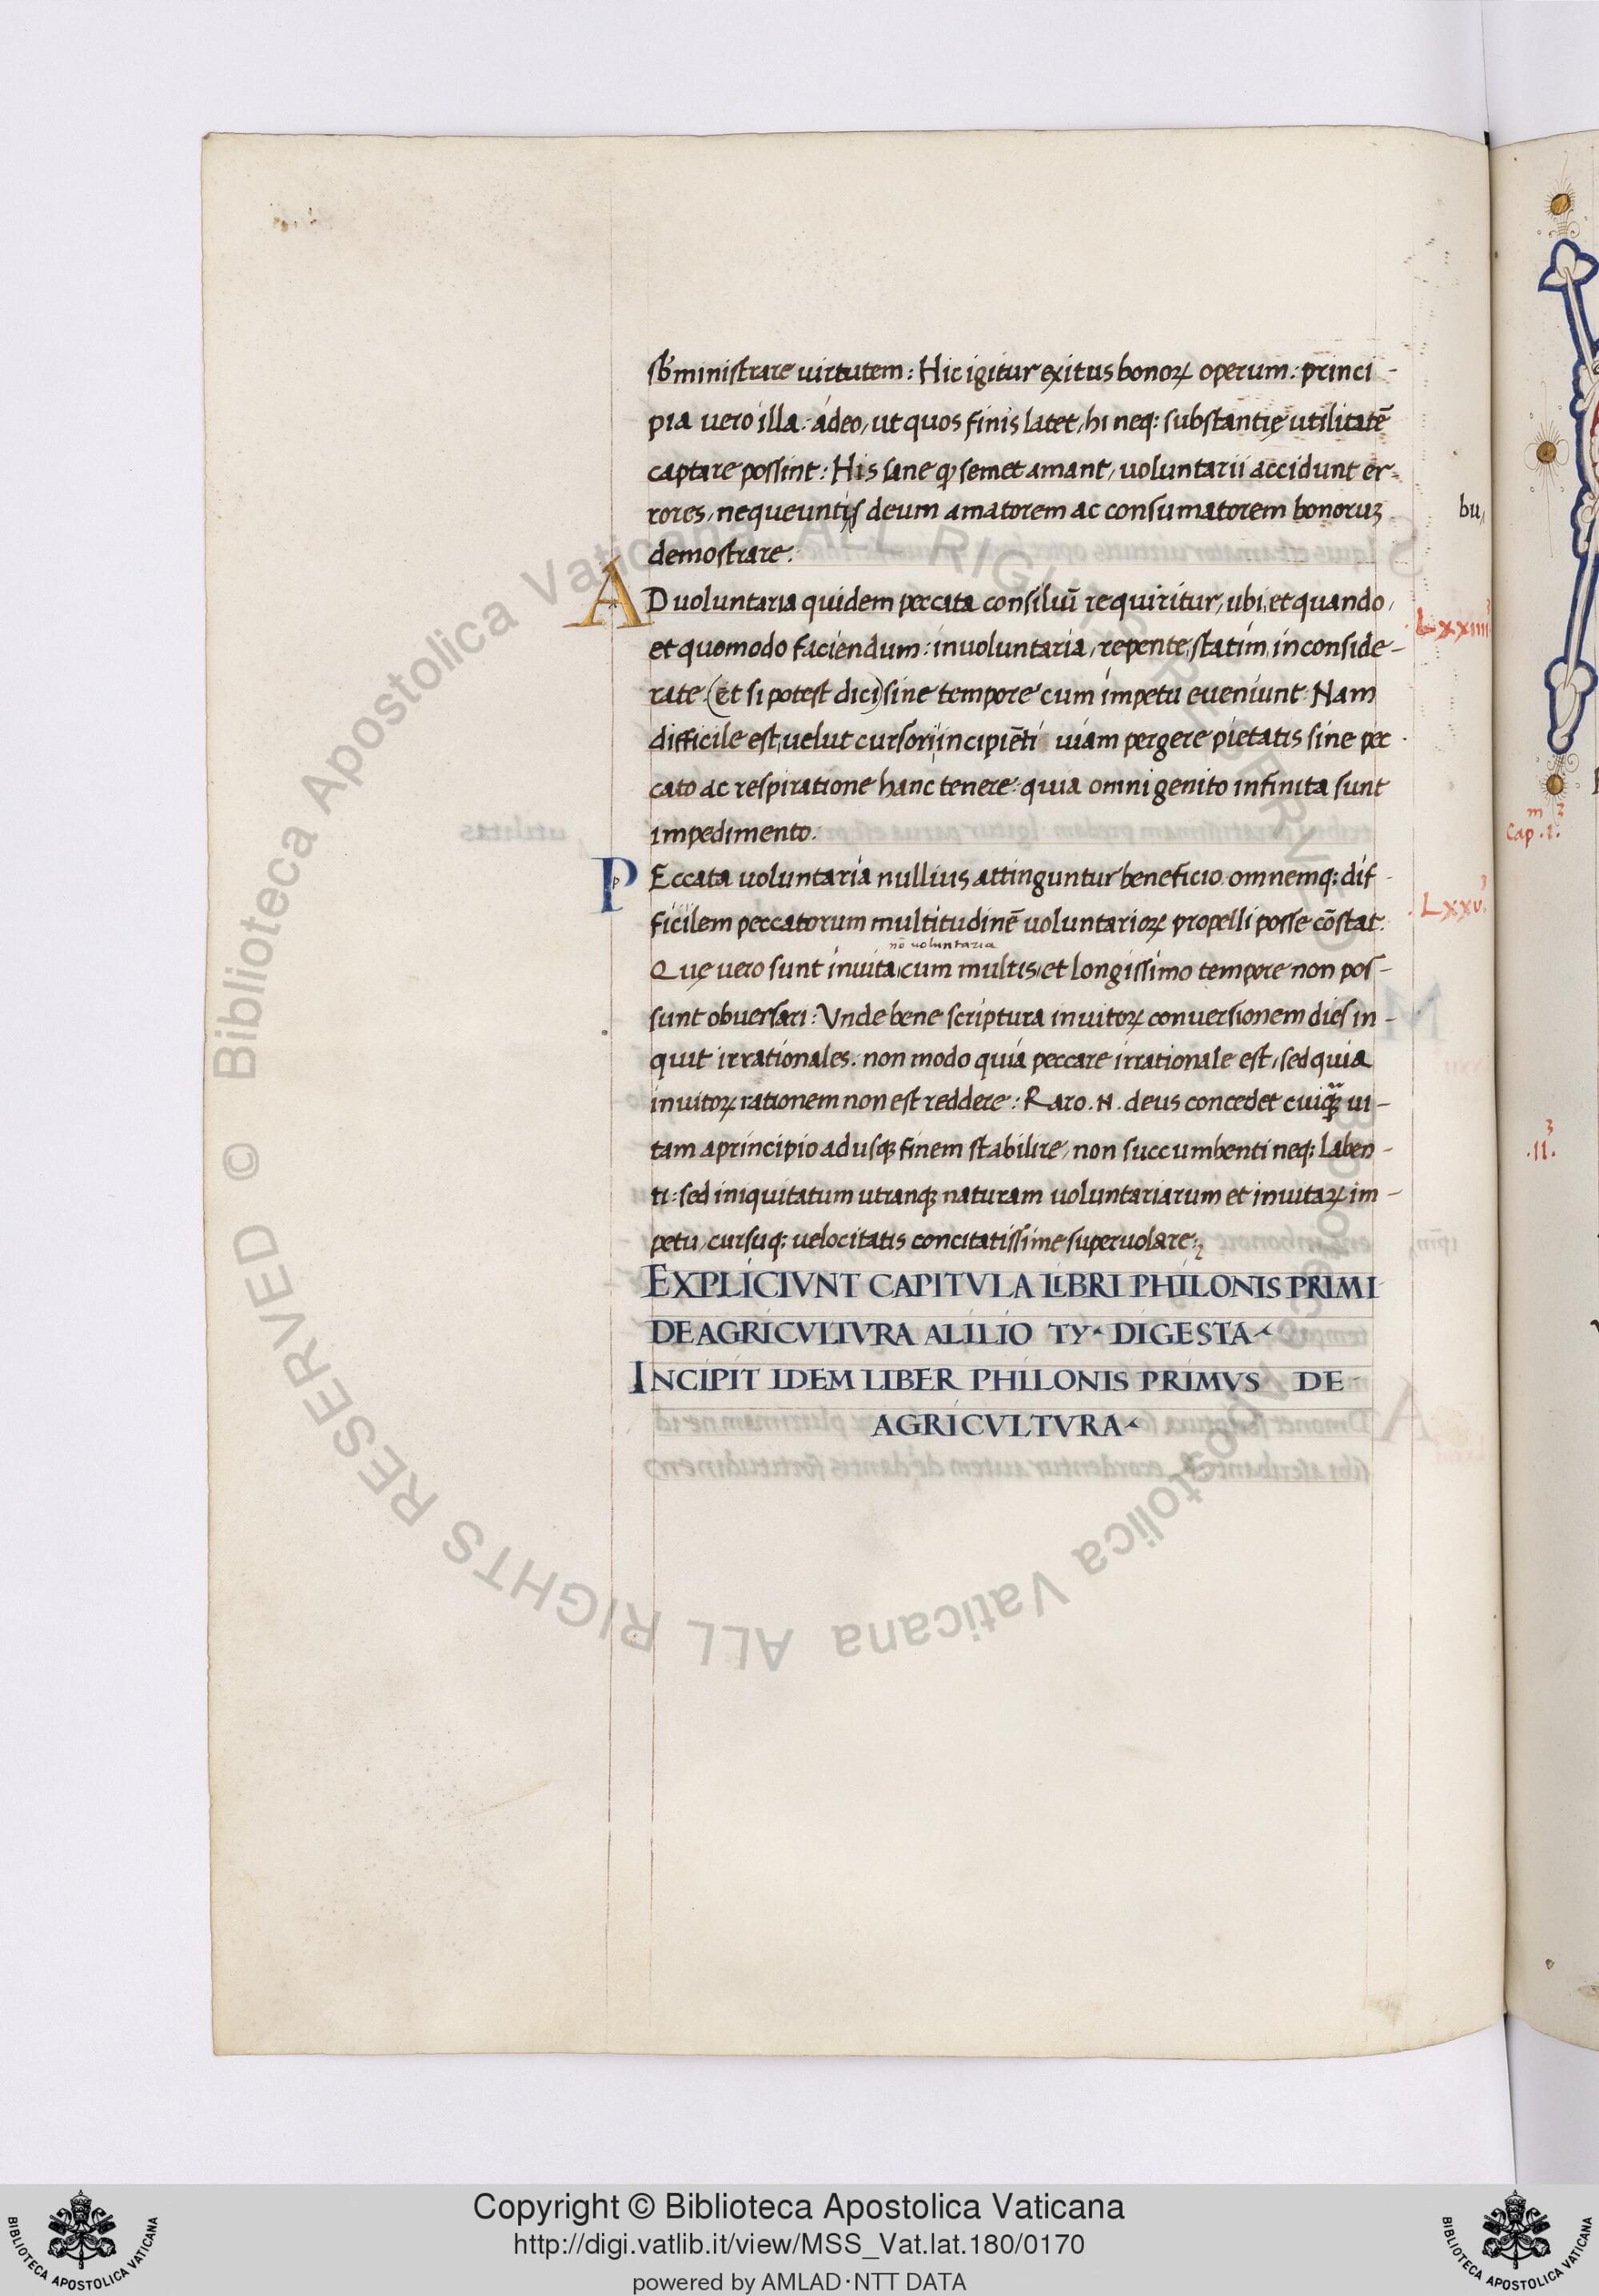 sb̄ministrare uirtutem: Hic igitur exitus bonoꝝ operum: princi-
pia uero illa: adeo, ut quos finis latet, hi neq: substantię utilitatē
captare possint: His sane ꝙ semet amant, uoluntarii accidunt er-
rores, nequeuntis deum amatorem ac consumatorem bonoruʒ
demostrare:
AD uoluntaria quidem peccata consiluī requiritur, ubi, et quando,
et quomodo faciendum: inuoluntaria, repente, statim, inconside-
rate (et si potest dici) sine tempore cum impetu eueniunt: Nam
difficile est, uelut cursori incipiēti uiam pergere pietatis sine pec-
cato ac respiratione hanc tenere: quia omni genito infinita sunt
impedimento:
PEccata uoluntaria nullius attinguntur beneficio omnemq: dif-
ficilem peccatorum multitudinē uoluntarioꝝ propelli posse cōstat:
nō uoluntaria
Quę uero sunt inuita, cum multis, et longissimo tempore non pos-
sunt obuersari: Vnde bene scriptura inuitoꝝ conuersionem dies in-
quit irrationales: non modo quia peccare irrationale est, sed quia
inuitoꝝ rationem non est reddere: Raro .N. deus concedet cuiqꝫ ui-
tam a principio ad usqꝫ finem stabilire, non succumbenti neq: laben-
ti: sed iniquitatum utranqꝫ naturam uoluntariarum et inuitaꝝ im-
petu, cursuq: uelocitatis concitatissime superuolare:
EXPLICIVNT CAPITVLA LIBRI PHILONIS PRIMI
DE AGRICVLTVRA A LILIO TY· DIGESTA
INCIPIT IDEM LIBER PHILONIS PRIMVS DE
AGRICVLTVRA
Lxxiiii
Lxxv
bu,
Cap. I.
.II.
© Biblioteca Apostolica Vaticana ALL RIGHTS RESERVED
© Biblioteca Apostolica Vaticana ALL RIGHTS RESERVED
Copyright © Biblioteca Apostolica Vaticana
http://digi.vatlib.it/view/MSS_Vat.lat.180/0170
powered by AMLAD·NTT DATA
BIBLIOTECA APOSTOLICA VATICANA
BIBLIOTECA APOSTOLICA VATICANA